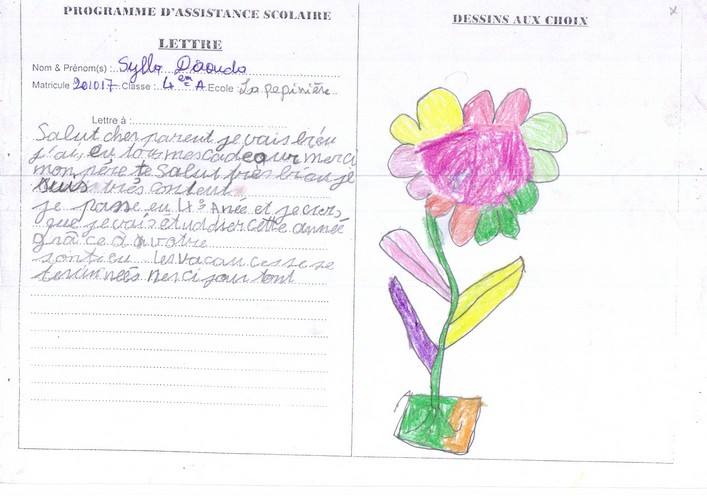 PROGRAMME D'ASSISTANCE SCOLAIRE
LETTRE
Nom & Prénom(s) : Sylla Daouda
Matricule 201017 Classe : 4 em A Ecole : La pepinière
Lettre à :
Salut cher parent je vais bien
j'ai eu tous mes cadeaux merci
mon père te salut très bien je
suis très content
je passe en 4 3 Anée et je crois
que je vais étuddier cette année
grâce à votre
soutien les vacancesse se
terminées Merci pour tout
DESSINS AUX CHOIX
x